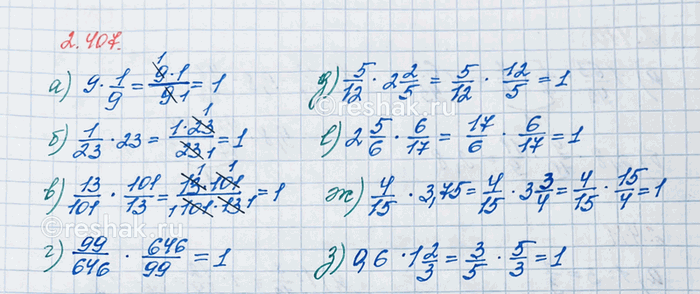 2.407.
а) 9 · 1/9 = 9·1/9 1 = 1
б) 1/23 · 23 = 1·23/23 1 = 1
в) 13/101 · 101/13 = 13·101/101·13 = 1
г) 99/646 · 646/99 = 1
д) 5/12 · 2 2/5 = 5/12 · 12/5 = 1
е) 2 5/6 · 6/17 = 17/6 · 6/17 = 1
ж) 4/15 · 3,75 = 4/15 · 3 3/4 = 4/15 · 15/4 = 1
з) 0,6 · 1 2/3 = 3/5 · 5/3 = 1
©reshak.ru